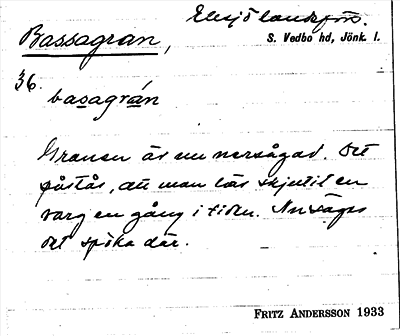 Bassagran,
S. Vedbo hd, Jönk. l.
36.
basagrán
Granen är nu nersågad. Det
påstås, att man lär skjutit en
varg en gång i tiden. Nu säges
det spöka där.
FRITZ ANDERSSON 1933